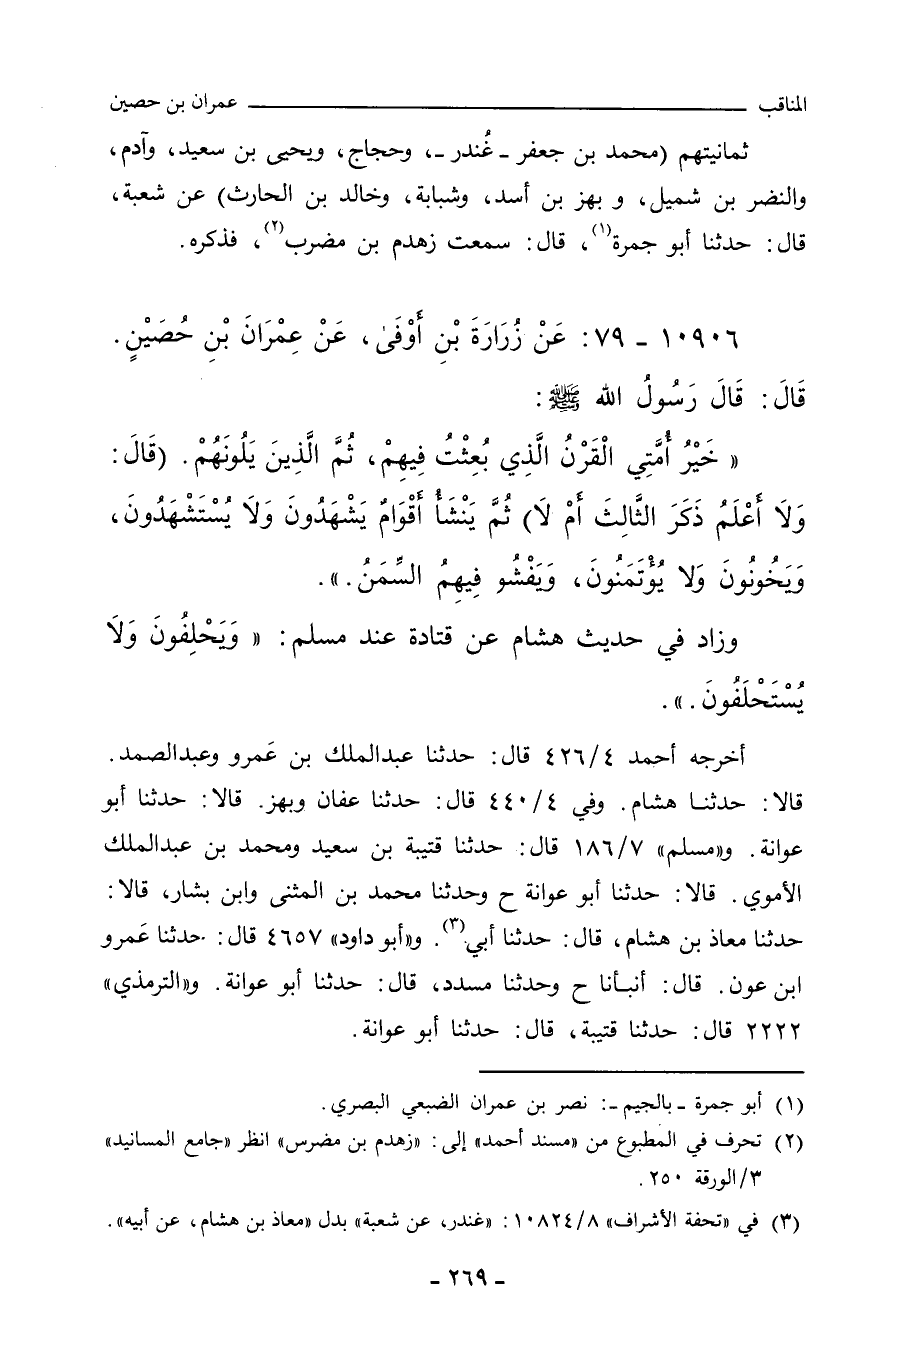 المناقب ــــــــــ عمران بن حصين
ثمانيتهم (محمد بن جعفر ـ غُندر ـ، وحجاج، ويحيى بن سعيد، وآدم،
والنضر بن شميل، و بهز بن أسد، وشبابة، وخالد بن الحارث) عن شعبة،
قال: حدثنا أبو جمرة(١)، قال: سمعت زهدم بن مضرب(٢)، فذكره.
١٠٩٠٦ ـ ٧٩: عَنْ زُرَارَةَ بْنِ أَوْفَىٰ، عَنْ عِمْرَانَ بْنِ حُصَيْنٍ.
قَالَ: قَالَ رَسُولُ الله ﷺ:
« خَيْرُ أُمَّتِي الْقَرْنُ الَّذِي بُعِثْتُ فِيهِمْ، ثُمَّ الَّذِينَ يَلُونَهُمْ. (قَالَ:
وَلَا أَعْلَمُ ذَكَرَ الثَّالِثَ أَمْ لَا) ثُمَّ يَنْشَأُ أَقْوَامٌ يَشْهَدُونَ وَلَا يُسْتَشْهَدُونَ،
وَيَخُونُونَ وَلا يُؤْتَمَنُونَ، وَيَفْشُو فِيهِمُ السِّمَنُ.».
وزاد في حديث هشام عن قتادة عند مسلم: « وَيَحْلِفُونَ وَلَا
يُسْتَحْلَفُونَ.».
أخرجه أحمد ٤٢٦/٤ قال: حدثنا عبدالملك بن عَمرو وعبدالصمد.
قالا: حدثنا هشام. وفي ٤٤٠/٤ قال: حدثنا عفان وبهز. قالا: حدثنا أبو
عوانة. و«مسلم» ١٨٦/٧ قال: حدثنا قتيبة بن سعيد ومحمد بن عبدالملك
الأموي. قالا: حدثنا أبو عوانة ح وحدثنا محمد بن المثنى وابن بشار، قالا:
حدثنا معاذ بن هشام، قال: حدثنا أبي(٣). و«أبو داود» ٤٦٥٧ قال: حدثنا عَمرو
ابن عون. قال: أنبأنا ح وحدثنا مسدد، قال: حدثنا أبو عوانة. و«الترمذي»
٢٢٢٢ قال: حدثنا قتيبة، قال: حدثنا أبو عوانة.
(١) أبو جمرة ـ بالجيم ـ: نصر بن عمران الضبعي البصري.
(٢) تحرف في المطبوع من «مسند أحمد» إلى: «زهدم بن مضرس» انظر «جامع المسانيد»
٣/الورقة ٢٥٠.
(٣) في «تحفة الأشراف» ١٠٨٢٤/٨: «غندر، عن شعبة» بدل «معاذ بن هشام، عن أبيه».
ـ ٢٦٩ ـ